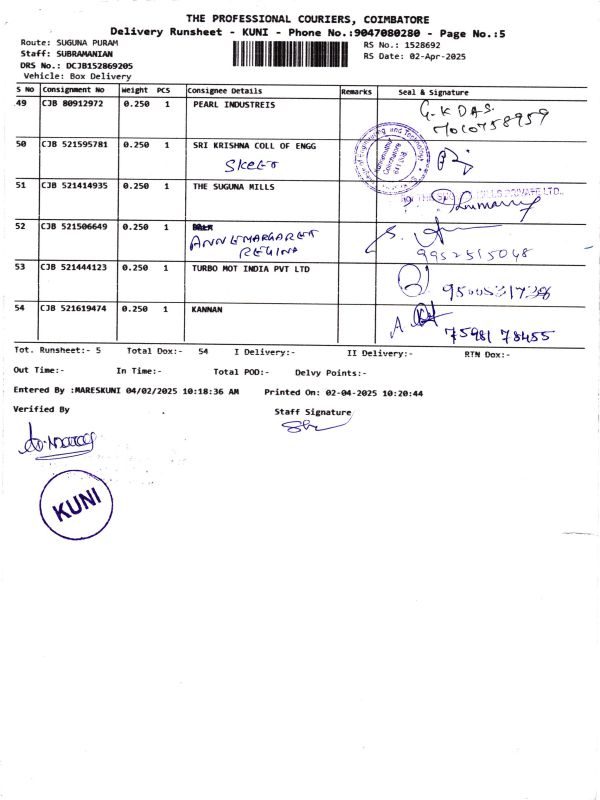 THE PROFESSIONAL COURIERS, COIMBATORE
Delivery Runsheet - KUNI - Phone No.:9047080280 - Page No.:5
Route: SUGUNA PURAM
RS No.: 1528692
Staff: SUBRAMANIAN
RS Date: 02-Apr-2025
DRS No.: DCJB152869205
Vehicle: Box Delivery
S No Consignment No Weight PCS Consignee Details Remarks Seal & Signature
49 CJB 80912972 0.250 1 PEARL INDUSTREIS G.K DAS.
7010758959
50 CJB 521595781 0.250 1 SRI KRISHNA COLL OF ENGG
SKCET
51 CJB 521414935 0.250 1 THE SUGUNA MILLS
52 CJB 521506649 0.250 1
ANNEMARGARET
REGINA
9952515048
53 CJB 521444123 0.250 1 TURBO MOT INDIA PVT LTD
9500531738
54 CJB 521619474 0.250 1 KANNAN
75981 78455
Tot. Runsheet:- 5 Total Dox:- 54 I Delivery:- II Delivery:- RTN Dox:-
Out Time:- In Time:- Total POD:- Delvy Points:-
Entered By :MARESKUNI 04/02/2025 10:18:36 AM Printed On: 02-04-2025 10:20:44
Verified By Staff Signature
KUNI